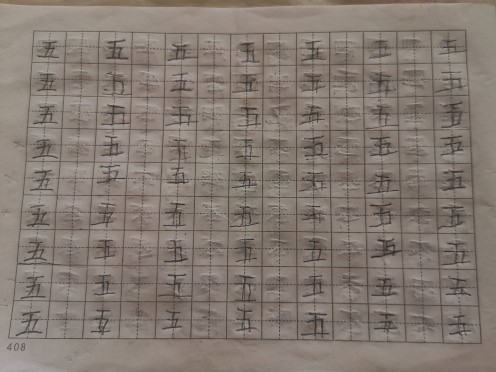 五 五 五 五 五 五 五
五 五 五 五 五 五 五
五 五 五 五 五 五 五
五 五 五 五 五 五 五
五 五 五 五 五 五 五
五 五 五 五 五 五 五
五 五 五 五 五 五 五
五 五 五 五 五 五 五
五 五 五 五 五 五 五
408